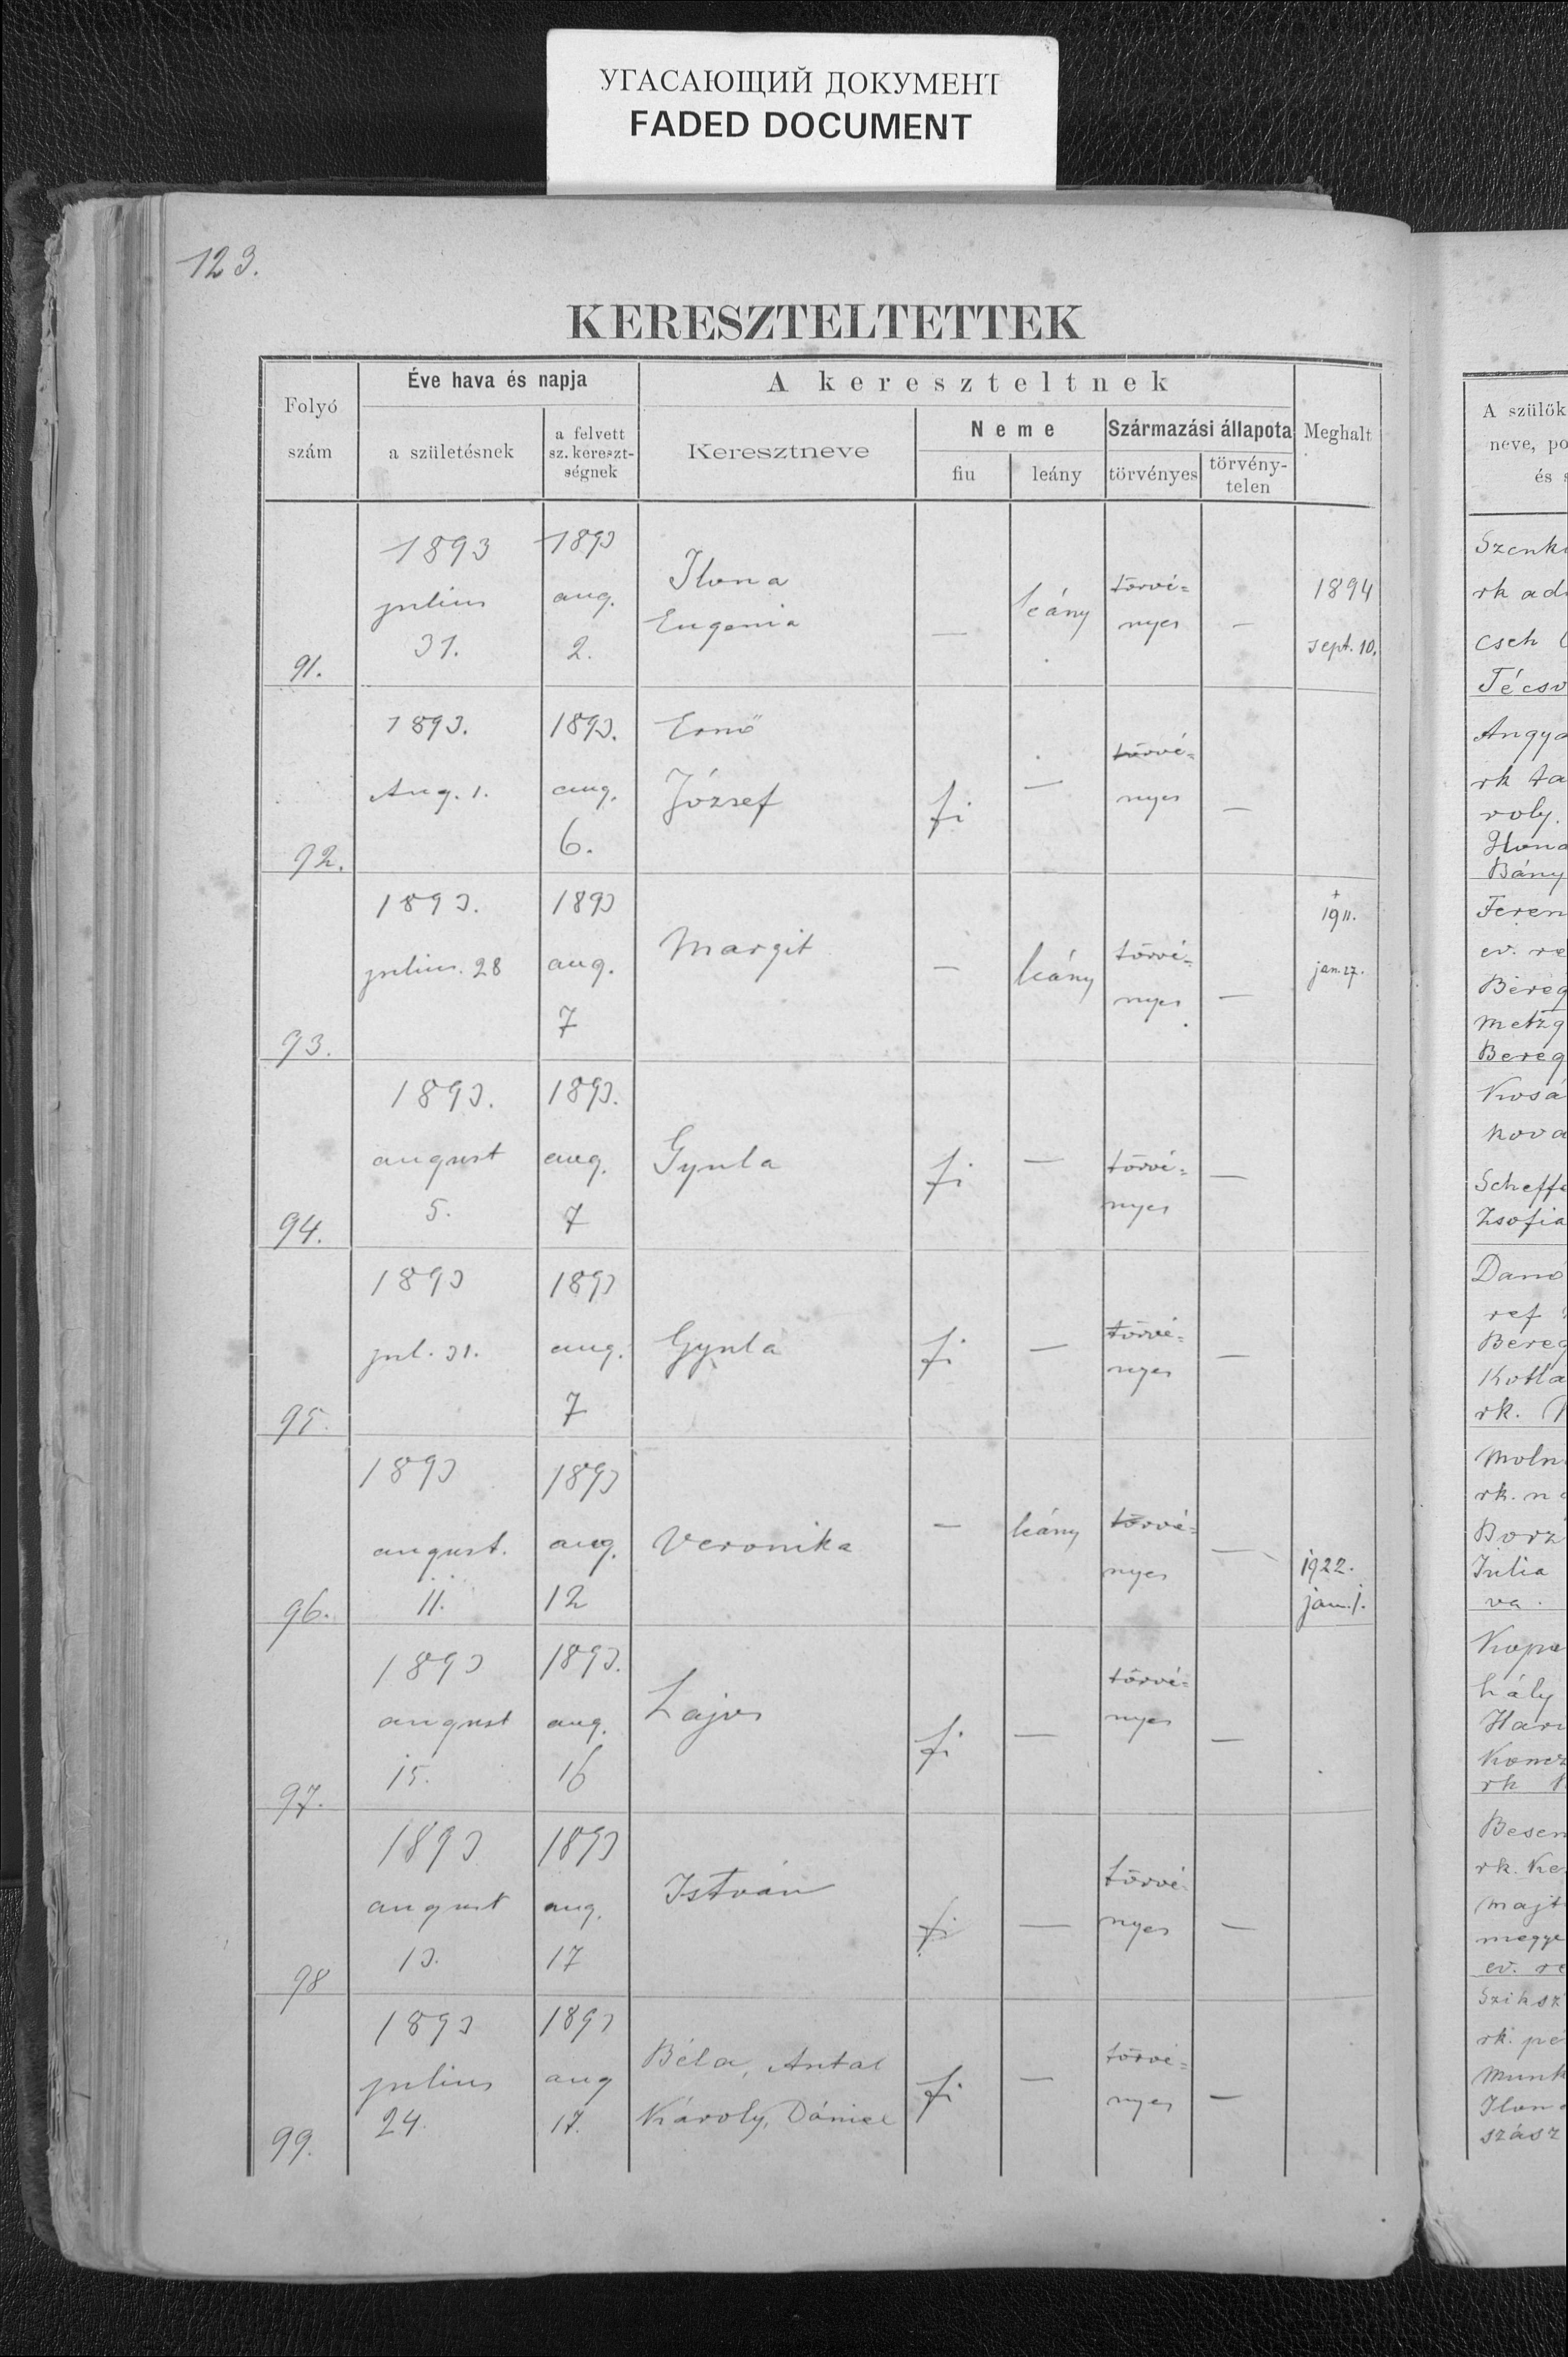 УГАСАЮЩИЙ ДОКУМЕНТ
FADED DOCUMENT
123.
KERESZTELTETTEK
Folyó szám
Éve hava és napja
a születésnek
a felvett sz. kereszt-ségnek
A kereszteltnek
Keresztneve
Neme
fiu
leány
Származási állapota
törvényes
törvény-telen
Meghalt
91. 1893 julius 31. 1893 aug. 2. Ilona Eugenia — leány törvé= nyes — 1894 sept. 10.
92. 1893. Aug. 1. 1893. aug. 6. Ernő József fi — törvé= nyes —
93. 1893. julius. 28 1893 aug. 7 Margit — leány törvé= nyes — + 1911. jan. 27.
94. 1893. august 5. 1893. aug. 7 Gyula fi — törvé= nyes —
95. 1893 jul. 31. 1893 aug. 7 Gyula fi — törvé= nyes —
96. 1893 august. 11. 1893 aug. 12 Veronika — leány törvé= nyes — 1922. jan. 1.
97. 1893 august 15. 1893. aug. 16 Lajos fi — törvé= nyes —
98 1893 august 13. 1893 aug. 17 István fi — törvé= nyes —
99. 1893 julius 24. 1893 aug 17. Béla, Antal Károly, Dániel fi — törvé= nyes —
A szülők
neve, po
és
rk
cseh
Técső
Angya
rk
roly.
Ilona
Bány
Feren
ev. re
Bereg
Metzg
Bereg
Kosa
Kova
Scheff
Zsofia
ref
Bereg
rk.
Moln
rk. n
Borz
Julia
va.
hály
rk
Besen
rk. Ke
majt
megye
ev. re
Sziksz
rk. pe
Munk
Ilon
szász